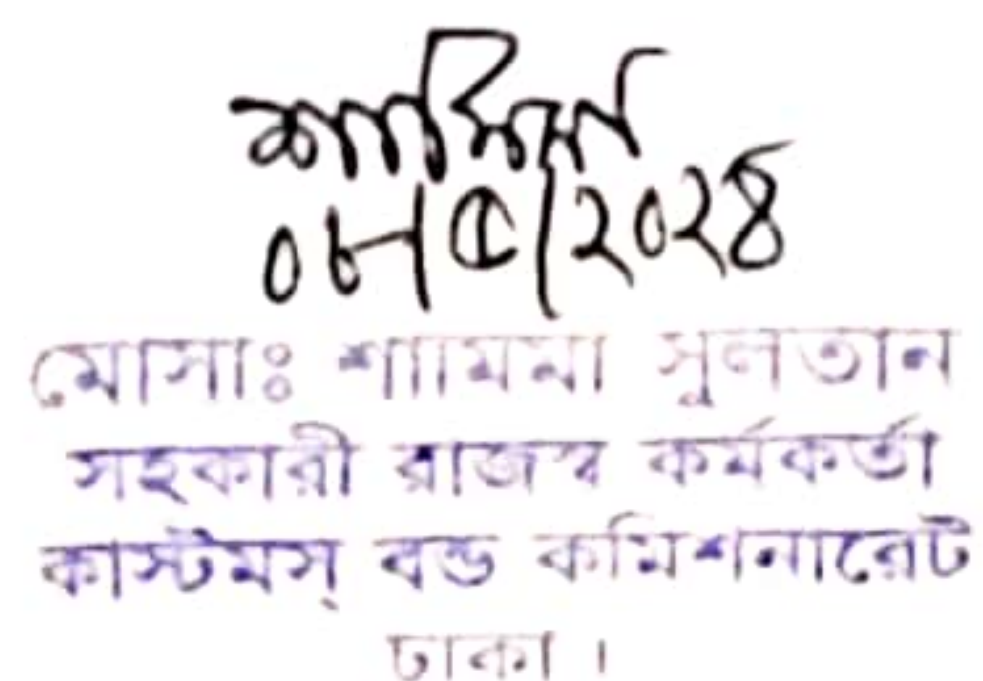 ০৮/৫/২০২৪
মোসাঃ শামিমা সুলতান
সহকারী রাজস্ব কর্মকর্তা
কাস্টমস্ বন্ড কমিশনারেট
ঢাকা ।